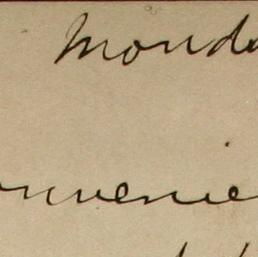 Monda
nvenie